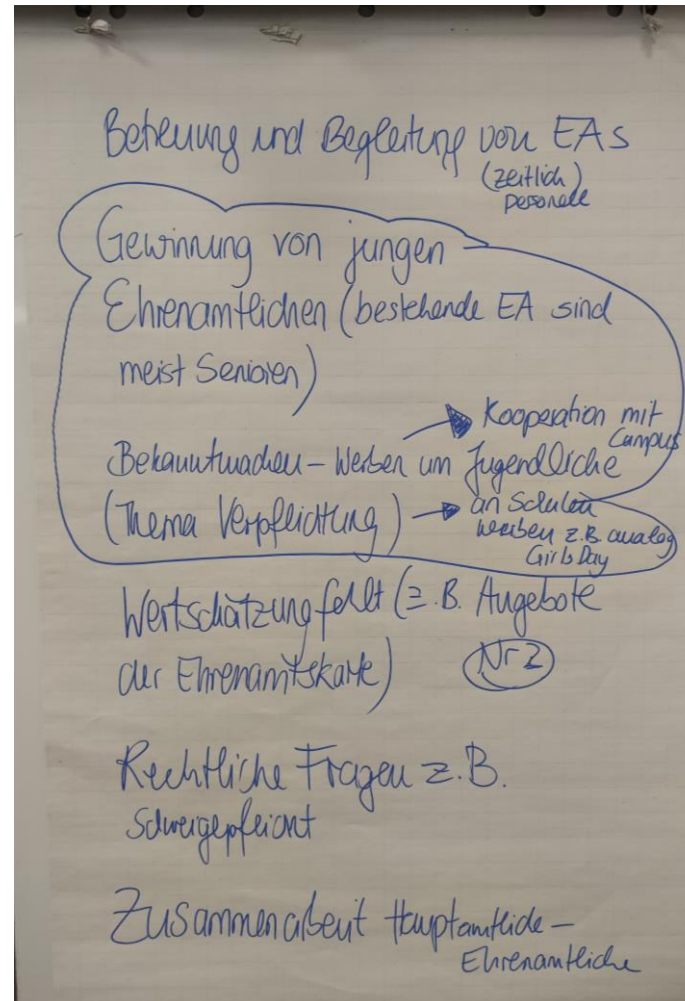 Betreuung und Begleitung von EAs
(zeitlich)
personell
Gewinnung von jungen
Ehrenamtlichen (bestehende EA sind
meist Senioren)
Kooperation mit
Campus
Bekanntmachen – Werben um Jugendliche
(Thema Verpflichtung)
an Schulen
werben z.B. analog
Girls Day
Wertschätzung fehlt (z.B. Angebote
der Ehrenamtskarte)
Nr 2
Rechtliche Fragen z.B.
Schweigepflicht
Zusammenarbeit Hauptamtliche –
Ehrenamtliche